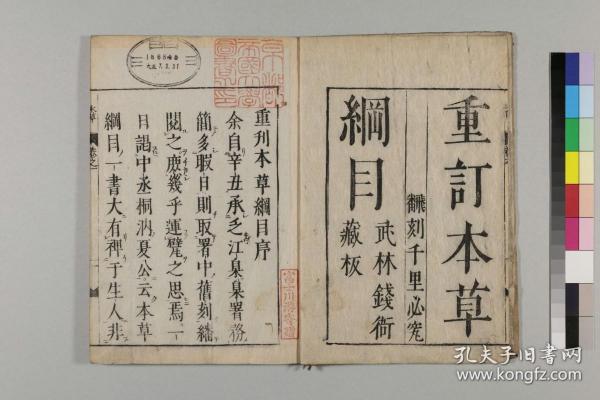 重訂本草
綱目
翻刻千里必究
武林錢衙
藏板
重刋本草綱目序
余自辛丑承乏江臬臬署務
簡多暇日則取署中舊刻繙
閱之庶幾乎運甓之思焉一
日謁中丞桐汭夏公云本草
綱目一書大有裨于生人非
孔夫子旧书网
www.kongfz.com